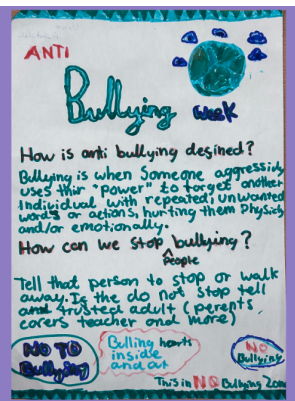 ANTI
Bullying
Week
How is anti bullying desined?
Bullying is when Someone aggressidy
uses thir "power" to target another
Individual with repeated, unwanted
words or actions, hurting them Physicly
and/or emotionally.
How can we stop bullying?
People
Tell that person to stop or walk
away. Is the do not stop tell
and trusted adult (perents
carers teacher and more)
NO TO
Bullying
Bulling hearts
inside
and out
NO
Bullying
This in NO Bullying Zone